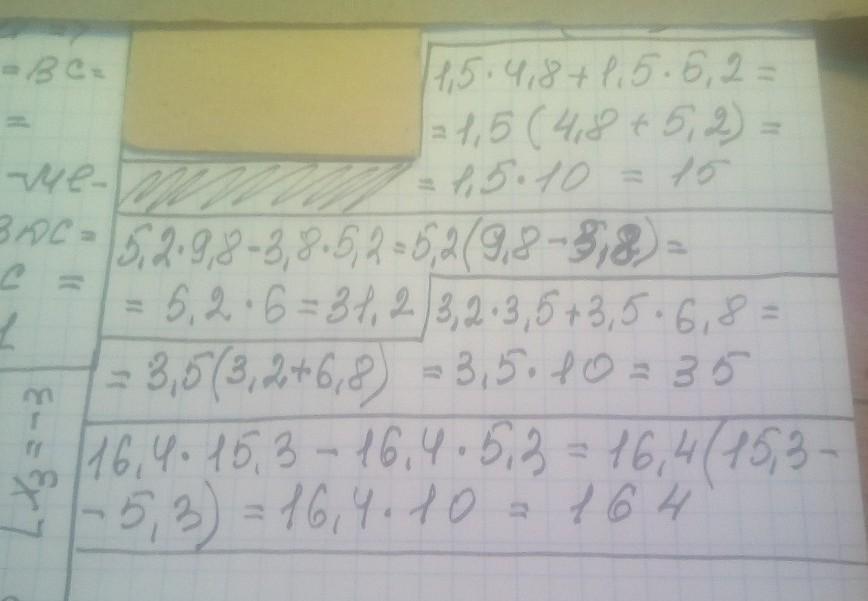 = BC =
=
1,5·4,8+1,5·5,2 =
= 1,5(4,8+5,2) =
= 1,5·10 = 15
5,2·9,8-3,8·5,2=5,2(9,8-3,8)=
= 5,2·6=31,2
3,2·3,5+3,5·6,8 =
= 3,5(3,2+6,8) = 3,5·10 = 35
16,4·15,3 - 16,4·5,3 = 16,4(15,3-
- 5,3) = 16,4·10 = 164
C =
1
x₃=-3